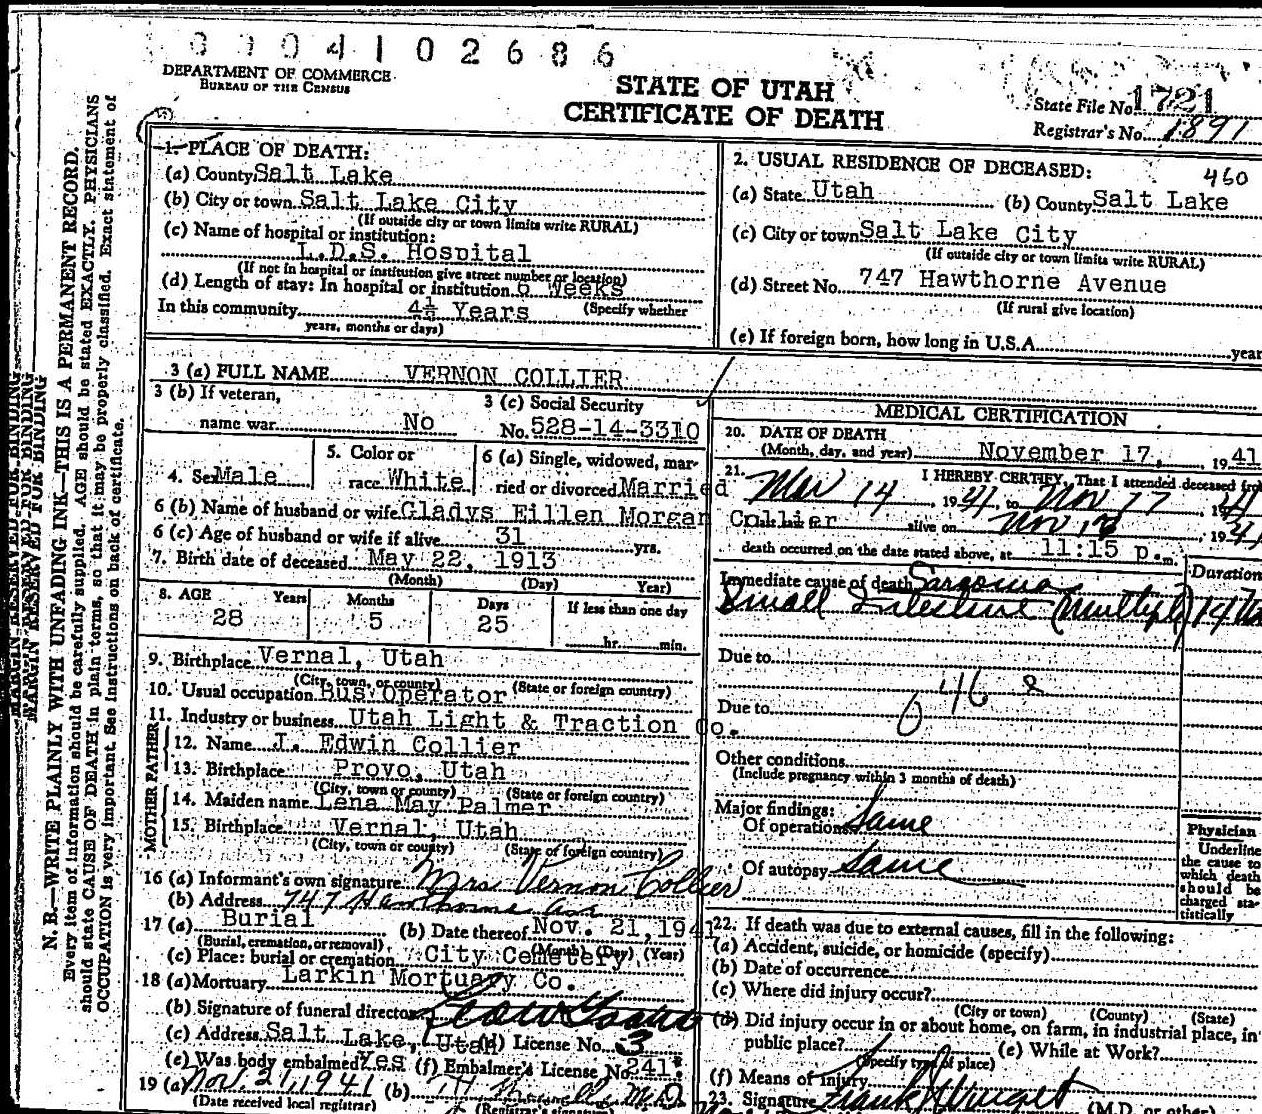 0 9 0 4 1 0 2 6 8 6
DEPARTMENT OF COMMERCE
BUREAU OF THE CENSUS
STATE OF UTAH
CERTIFICATE OF DEATH
State File No. 1721
Registrar's No. 1891
MARGIN RESERVED FOR BINDING
N. B.—WRITE PLAINLY WITH UNFADING INK—THIS IS A PERMANENT RECORD.
Every item of information should be carefully supplied. AGE should be stated EXACTLY. PHYSICIANS
should state CAUSE OF DEATH in plain terms, so that it may be properly classified. Exact statement of
OCCUPATION is very important. See instructions on back of certificate.
1. PLACE OF DEATH:
(a) County Salt Lake
(b) City or town Salt Lake City
(If outside city or town limits write RURAL)
(c) Name of hospital or institution:
L.D.S. Hospital
(If not in hospital or institution give street number or location)
(d) Length of stay: In hospital or institution 6 Weeks
In this community 4½ Years (Specify whether
years, months or days)
2. USUAL RESIDENCE OF DECEASED: 460
(a) State Utah (b) County Salt Lake
(c) City or town Salt Lake City
(If outside city or town limits write RURAL)
(d) Street No. 747 Hawthorne Avenue
(If rural give location)
(e) If foreign born, how long in U.S.A. year
3 (a) FULL NAME VERNON COLLIER
3 (b) If veteran,
name war No
3 (c) Social Security
No. 528-14-3310
4. Sex Male
5. Color or
race White
6 (a) Single, widowed, mar-
ried or divorced Married
6 (b) Name of husband or wife Gladys Eillen Morgan Collier
6 (c) Age of husband or wife if alive 31 yrs.
7. Birth date of deceased May 22, 1913
(Month) (Day) Year)
8. AGE Years Months Days If less than one day
28 5 25 hr. min.
9. Birthplace Vernal, Utah
(City, town, or county) (State or foreign country)
10. Usual occupation Bus Operator
11. Industry or business Utah Light & Traction Co.
FATHER
12. Name J. Edwin Collier
13. Birthplace Provo, Utah
(City, town or county) (State or foreign country)
MOTHER
14. Maiden name Lena May Palmer
15. Birthplace Vernal, Utah
(City, town or county) (State of foreign country)
16 (a) Informant's own signature Mrs Vernon Collier
(b) Address 747 Hawthorne Ave
17 (a) Burial (b) Date thereof Nov. 21, 1941
(Burial, cremation, or removal) (Month) (Day) (Year)
(c) Place: burial or cremation City Cemetery
18 (a) Mortuary Larkin Mortuary Co.
(b) Signature of funeral director
(c) Address Salt Lake, Utah (d) License No. 3
(e) Was body embalmed? Yes (f) Embalmer's License No. 241
19 (a) Nov. 21, 1941 (b) M.D.
(Date received local registrar) (Registrar's signature)
MEDICAL CERTIFICATION
20. DATE OF DEATH
(Month, day, and year) November 17, 1941
21. I HEREBY CERTIFY, That I attended deceased from
Mar 14, 1941, to Nov 17 1941
alive on Nov 17, 1941
death occurred on the date stated above, at 11:15 p. m.
Immediate cause of death Sarcoma Duration
Small Intestine (multiple) 14
Due to
046
Due to
Other conditions
(Include pregnancy within 3 months of death)
Major findings:
Of operations Same
Of autopsy Same
Physician
Underline
the cause to
which death
should be
charged sta-
tistically
22. If death was due to external causes, fill in the following:
(a) Accident, suicide, or homicide (specify)
(b) Date of occurrence
(c) Where did injury occur?
(City or town) (County) (State)
(d) Did injury occur in or about home, on farm, in industrial place, in
public place? (e) While at Work?
(Specify type of place)
(f) Means of injury
23. Signature Frank
(M.D. or other)